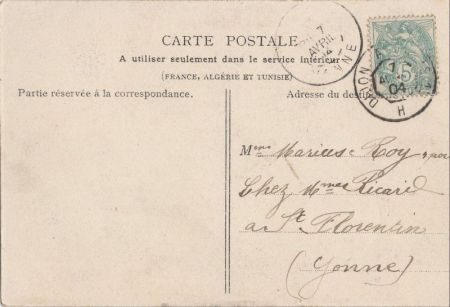 CARTE POSTALE
A utiliser seulement dans le service intérieur
(FRANCE, ALGÉRIE ET TUNISIE)
Partie réservée à la correspondance.
Adresse du
7
AVRIL
04
NNE
04
H
Mme Marius Roy
Chez Mmes Ricard
a St Florentin
(Yonne)